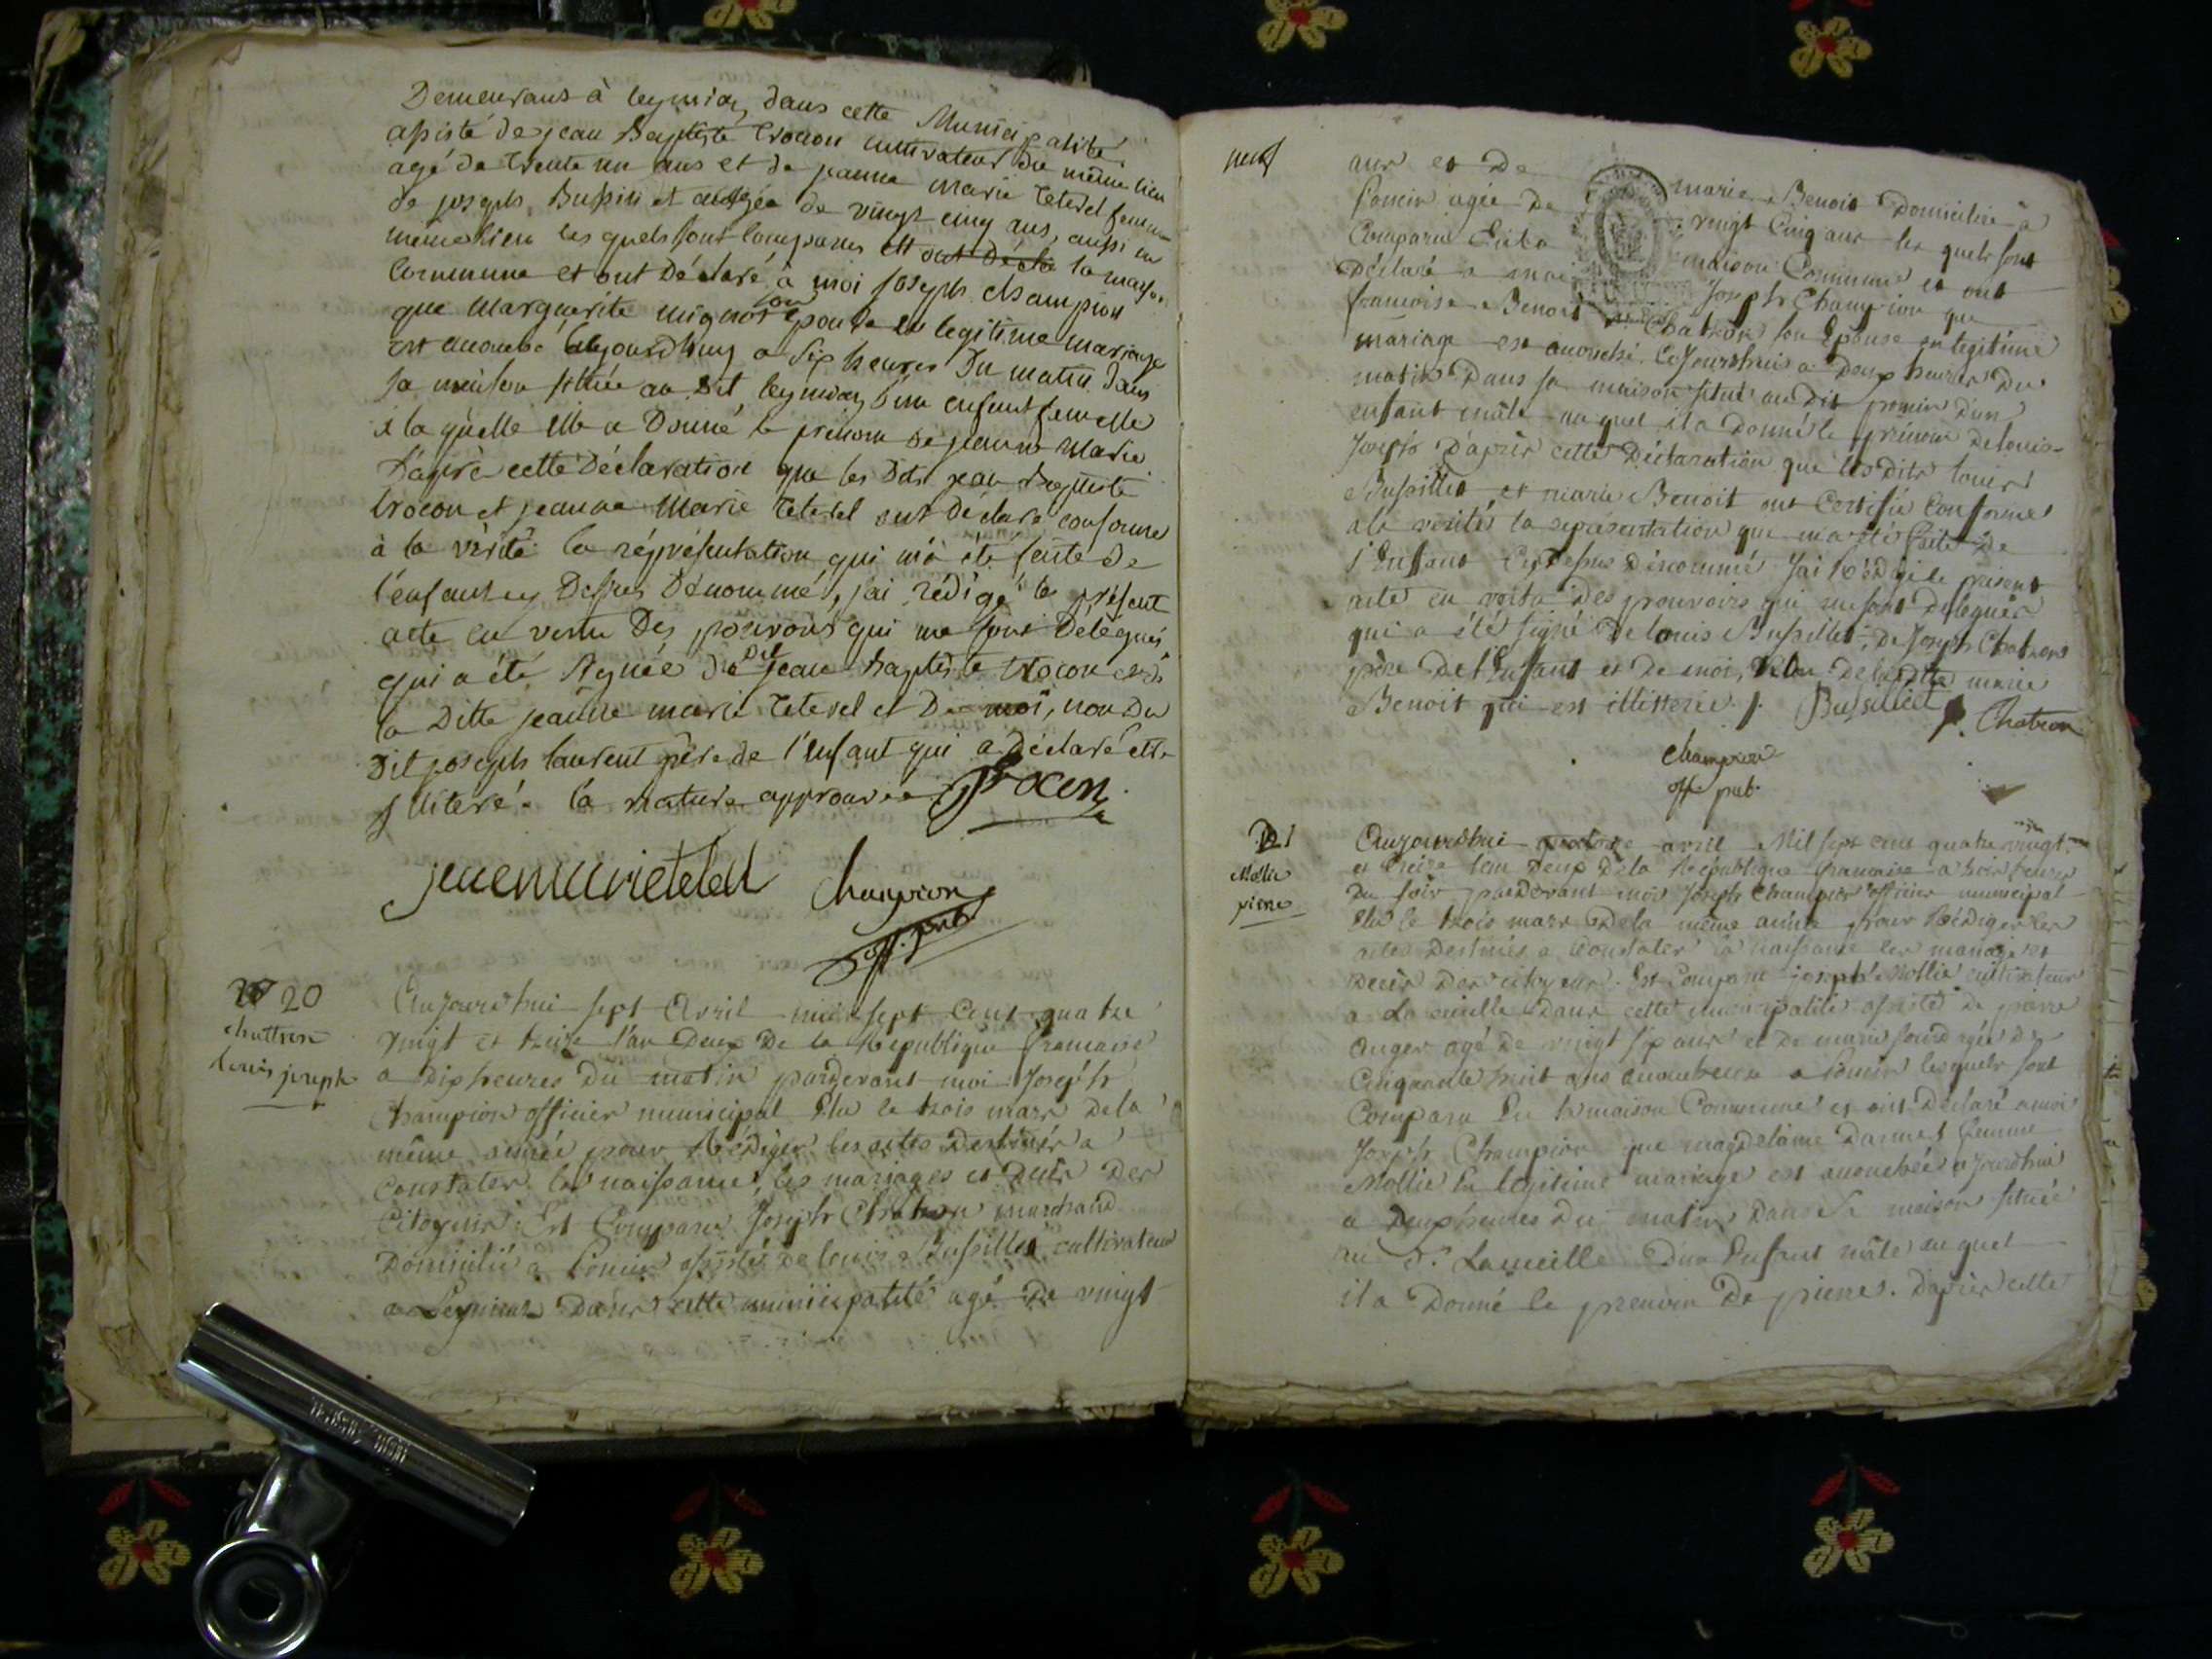 Demeurans à leymian, dans cette Municipalité
assisté de jean Baptiste trocon cultivateur du même lieu
agé de trente un ans et de jeanne marie tetevel femme
de joseph Bussin et agée de vingt cinq ans, aussi du
même lieu les quels sont comparus et ont Décla la maison
Commune et ont Déclaré à moi joseph champion
que Marguerite mignot son epouse en legitime mariage
est accouché aujourd'huy a six heures Du matin dans
sa maison sittuée au dit leymian, d'un enfant femelle
à la quelle elle a Donné le prénom de jeanne Marie
D'après cette déclaration que les Dits jean Baptiste
trocon et jeanne Marie tetevel ont déclaré conforme
à la vérité la réprésentation qui m'à été faite de
l'enfant cy Dessus Dénommé, j'ai rédigé le présent
acte en vertu Des pouvoirs qui me sont Délégués,
qui a été signée de Dit jean baptiste trocon et de
la Ditte jeanne marie tetevel et De moi, non Du
Dit joseph laurent père de l'enfant qui a déclaré etre
illiteré. la rature approuvée Trocon
jeanemarietetevel Champion
off. pub.
20
chattron
louis joseph
Aujourd'hui sept Avril mil sept Cent quatre
vingt et treize l'an Deux De la République francaise
a dix heures Du matin pardevant moi Joseph
Champion officier municipal Elu le trois mars de la
même année pour Rédiger les actes Destinés a
Constater les naissances les mariages et Décès Des
Citoyens. Est Comparu Joseph Chatron marchand
Domicilié a assisté de louis Bussillet cultivateur
a Leymian Dans cette municipalité agé De vingt
neuf
ans et De marie Benoit Domiciliée à
agée De vingt Cinq ans les quels sont
Comparu En la maison Commune et ont
Déclaré a moi Joseph Champion que
francoise Benoit Chatron son Epouse en legitime
mariage est accouché aujourdhui a Deux heures Du
matin Dans sa maison situé au dit d'un
enfant mâle au quel il a Donné le prénom de louis
Joseph D'après cette Déclaration que les Dits louis
Bussillet et marie Benoit ont Certifié Conforme
a la vérité la représentation que m'a été faite De
l'Enfant Cy Dessus Dénommé J'ai Rédigé le présent
acte en vertu Des pouvoirs qui me sont Délégués
qui a été signé De louis Bussillet, De Joseph Chatron
père De l'Enfant et De moi, Non De la ditte marie
Benoit qui est illitterée. Bussillet J. Chatron
champion
off. pub.
21
Mollie
pierre
Aujourdhui quatorze avril Mil sept cent quatre vingt
et treize l'an Deux De la République francaise a trois heures
Du soir pardevant moi Joseph Champion officier municipal
Elu le trois mars De la même année pour Rédiger les
actes Destinés a Constater la naissance les mariages et
Décès Des citoyens. Est Comparu joseph Mollie cultivateur
a Dans cette municipalité assisté De pierre
Auger agé de vingt six ans et De marie agée De
Cinquante huit ans accoucheuse a lesquels sont
Comparu En la maison Commune et ont Déclaré a moi
Joseph Champion que magdelaine femme
Mollie En legitime mariage est accouchée aujourdhui
a Deux heures Du matin Dans sa maison située
au d.t D'un Enfant mâle au quel
il a Donné le prenom De pierres. D'après cette